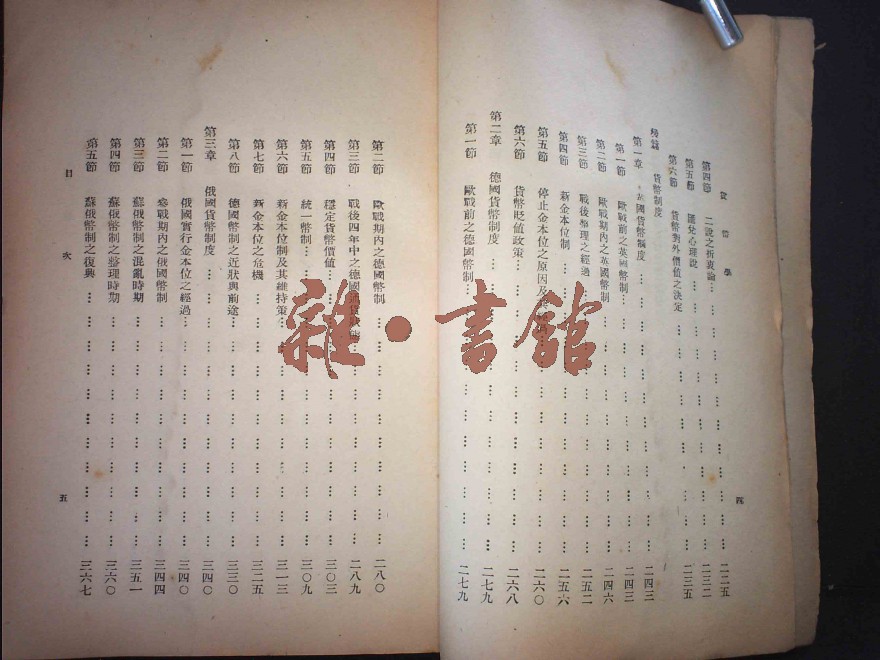 貨幣學
第四節 二說之折衷論 二二五
第五節 匯兌心理說 二三二
第六節 貨幣對外價值之決定 二三五
後篇 貨幣制度
第一章 英國貨幣制度 二四三
第一節 歐戰前之英國幣制 二四三
第二節 歐戰期內之英國幣制 二四六
第三節 戰後整理之經過 二五二
第四節 新金本位制 二五六
第五節 停止金本位之原因及 二六〇
第六節 貨幣貶值政策 二六八
第二章 德國貨幣制度 二七九
第一節 歐戰前之德國幣制 二七九
四
第二節 歐戰期內之德國幣制 二八〇
第三節 戰後四年中之德國通貨狀態 二八九
第四節 穩定貨幣價值 三〇三
第五節 統一幣制 三〇九
第六節 新金本位制及其維持策 三一三
第七節 新金本位之危機 三二五
第八節 德國幣制之近狀與前途 三三〇
第三章 俄國貨幣制度 三四〇
第一節 俄國實行金本位之經過 三四〇
第二節 參戰期內之俄國幣制 三四四
第三節 蘇俄幣制之混亂時期 三五一
第四節 蘇俄幣制之整理時期 三六〇
第五節 蘇俄幣制之復興 三六七
目次
五
雜·書館